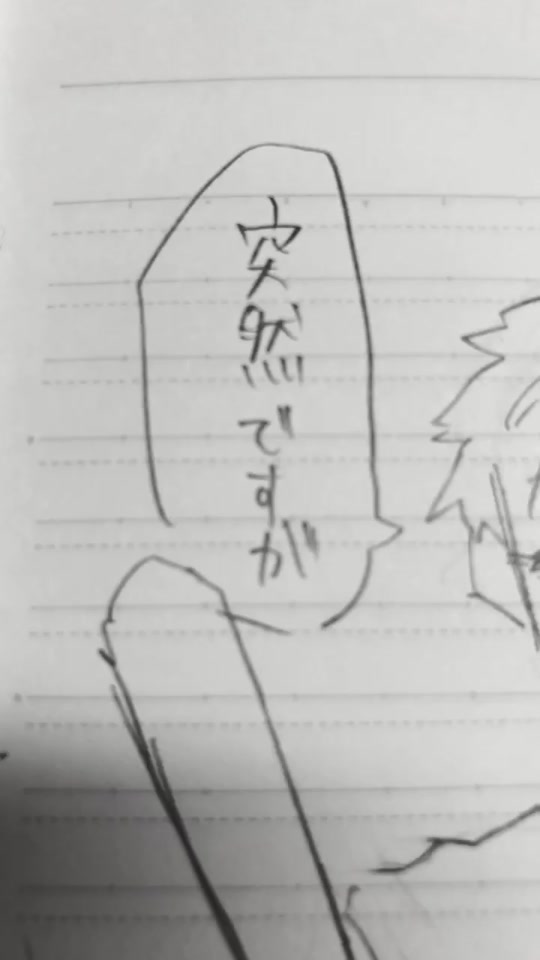 突然ですが